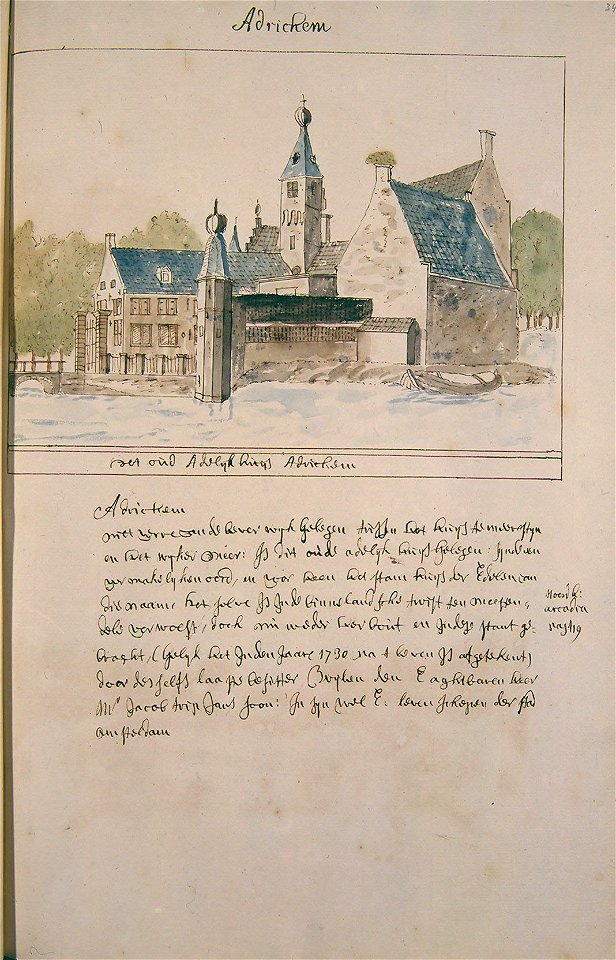 34
Adrichem
Het oud Adelyk huys Adrichem
Adrichem
niet verre van de bever wyk gelegen tussen het huys te meeresteyn
en het wyker meer: Is dit oude adelyk huys gelegen: in den
vermakelyken oord, en voor heen het stam huys der Edelen van
die naam, het selve Is In de binnelandsche twist ten meesten-
dele verwoest, doch nu weder her bout en In dese staat ge-
bracht, (gelyk het In den Jaare 1730 na t leven Is afgetekent)
door desselfs laaste besitter den E agtbaren heer
Mr Jacob trip Jans soon: In syn wel E: leven schepen der stad
amsterdam
noord h:
arcadia
pag 119